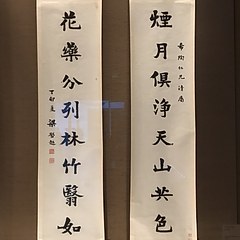 煙月俱淨天山共色
花藥分列林竹翳如
丁卯夏 梁啓超